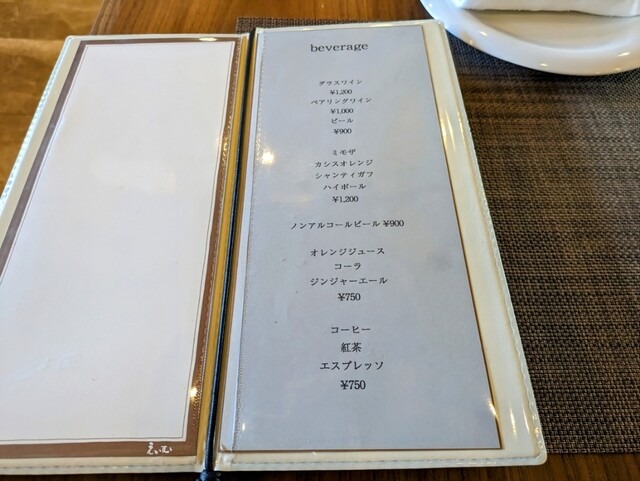 beverage
グラスワイン
¥1,200
ペアリングワイン
¥1,000
ビール
¥900
ミモザ
カシスオレンジ
シャンティガフ
ハイボール
¥1,200
ノンアルコールビール ¥900
オレンジジュース
コーラ
ジンジャーエール
¥750
コーヒー
紅茶
エスプレッソ
¥750
えいむ